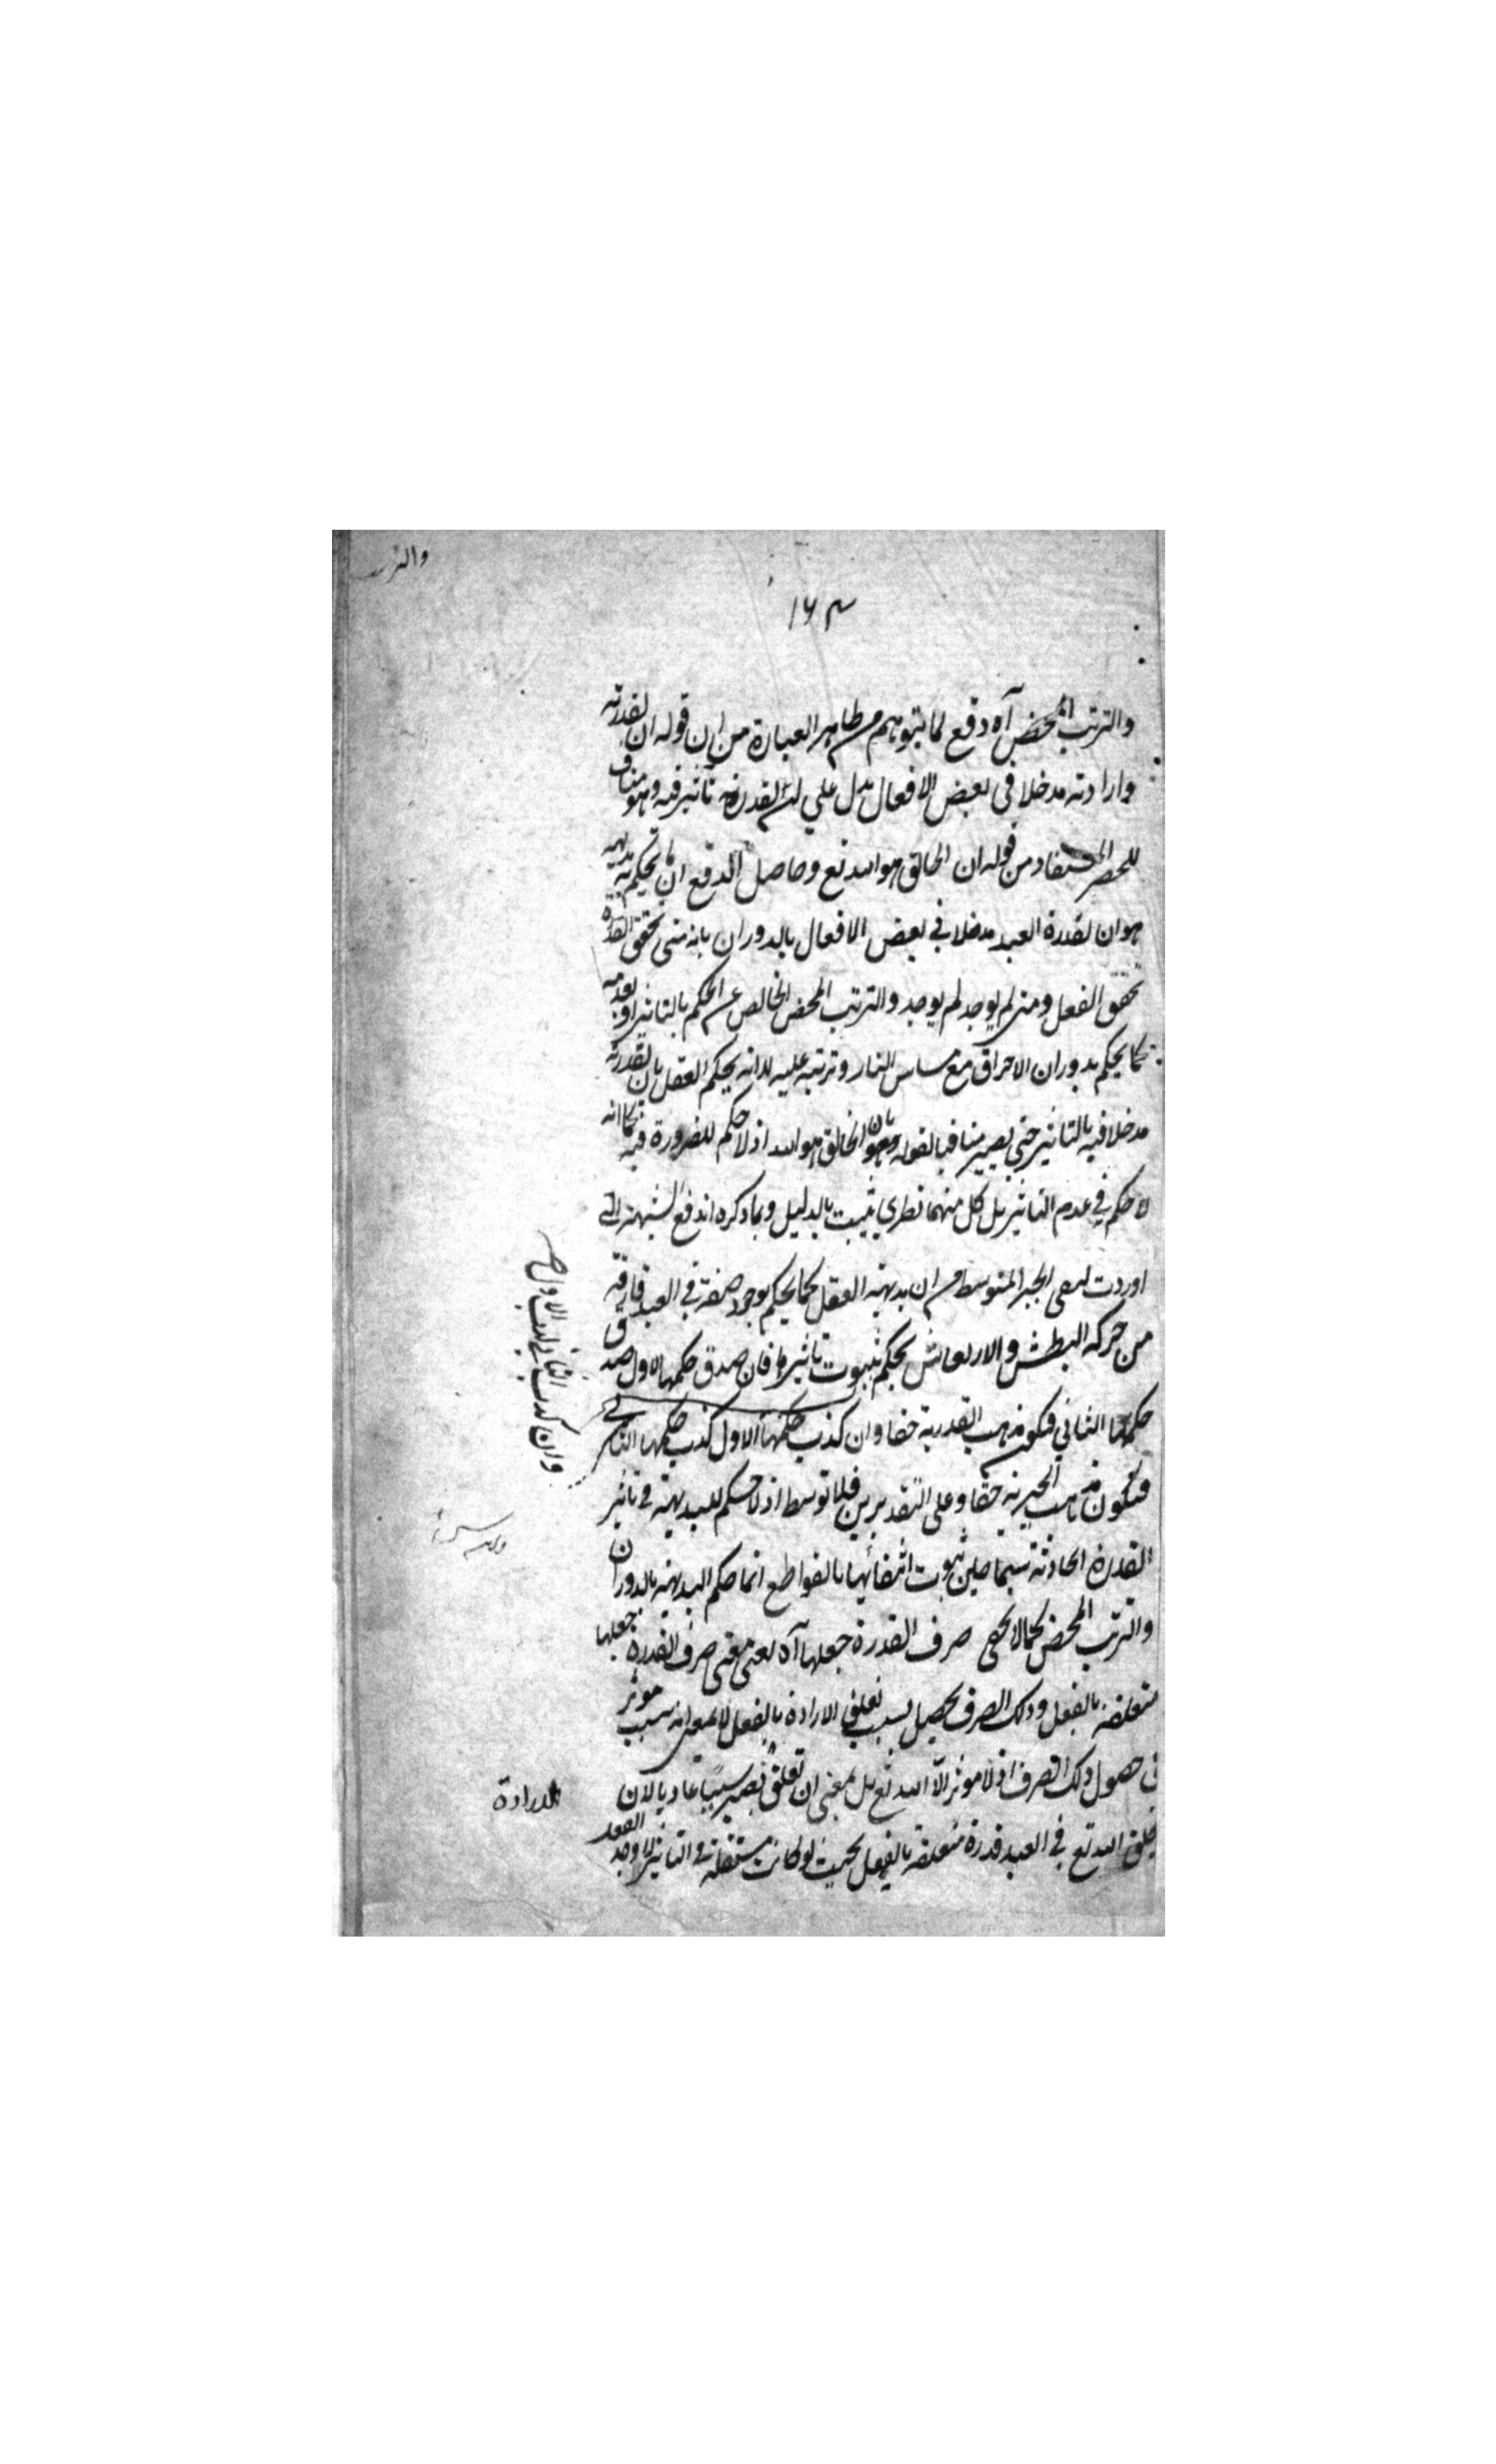 والتر
۱۶۳
والترتب المحض آه دفع لما يتوهم من ظاهر العبارة من ان قوله ان لقدرته
وارادته مدخلا في بعض الافعال يدل علي ان لقدرته تأثير فيه وهو مناف
للحصر المستفاد من قوله ان الخالق هو الله تع وحاصل الدفع ان ما يحكم به بديهية
هو ان لقدرة العبد مدخلا في بعض الافعال بالدوران بانه متى تحقق القدرة
تحقق الفعل ومتى لم يوجد لم يوجد والترتب المحض الخالص عن الحكم بالتاثير او بعدمه
كما يحكم بدوران الاحراق مع مساس النار وترتبه عليه لا انه يحكم العقل بان لقدرته
مدخلا فيه بالتاثير حتى يصير منافيا لقوله بان الخالق هو الله اذ لا حكم للضرورة فيه كما انه
لا حكم في عدم التاثير بل كل منهما نظري يثبت بالدليل وبما ذكره اندفع الشبهة التي
اوردت لنفي الجبر المتوسط من ان بديهة العقل كما يحكم بوجود صفة في العبد فارقة
من حركة البطش والارتعاش يحكم بثبوت تاثيرها فان صدق حكمها الاول صدق
حكمها الثاني فيكون مذهب القدرية حقا وان كذب حكمها الاول كذب حكمها الثاني
وان كذب الثاني كذب الاول صح
فيكون مذهب الجبرية حقا وعلى التقديرين فلا توسط اذ لا حكم للبديهة في تاثير
القدرة الحادثة سيما حين ثبوت انتفائها بالقواطع انما حكم البديهة بالدوران
والترتب المحض كما لا يخفى صرف القدرة جعلها آه يعني معنى صرف القدرة جعلها
متعلقة بالفعل وذلك الصرف يحصل بسبب تعلق الارادة بالفعل لا بمعنى انه سبب موثر
في حصول ذلك الصرف اذ لا موثر الا الله تع بل بمعنى ان تعلق يصير سببا عاديا لان
الارادة
يخلق الله تع في العبد قدرة متعلقة بالفعل بحيث لو كانت مستقلة في التاثير لاوجد الفعل